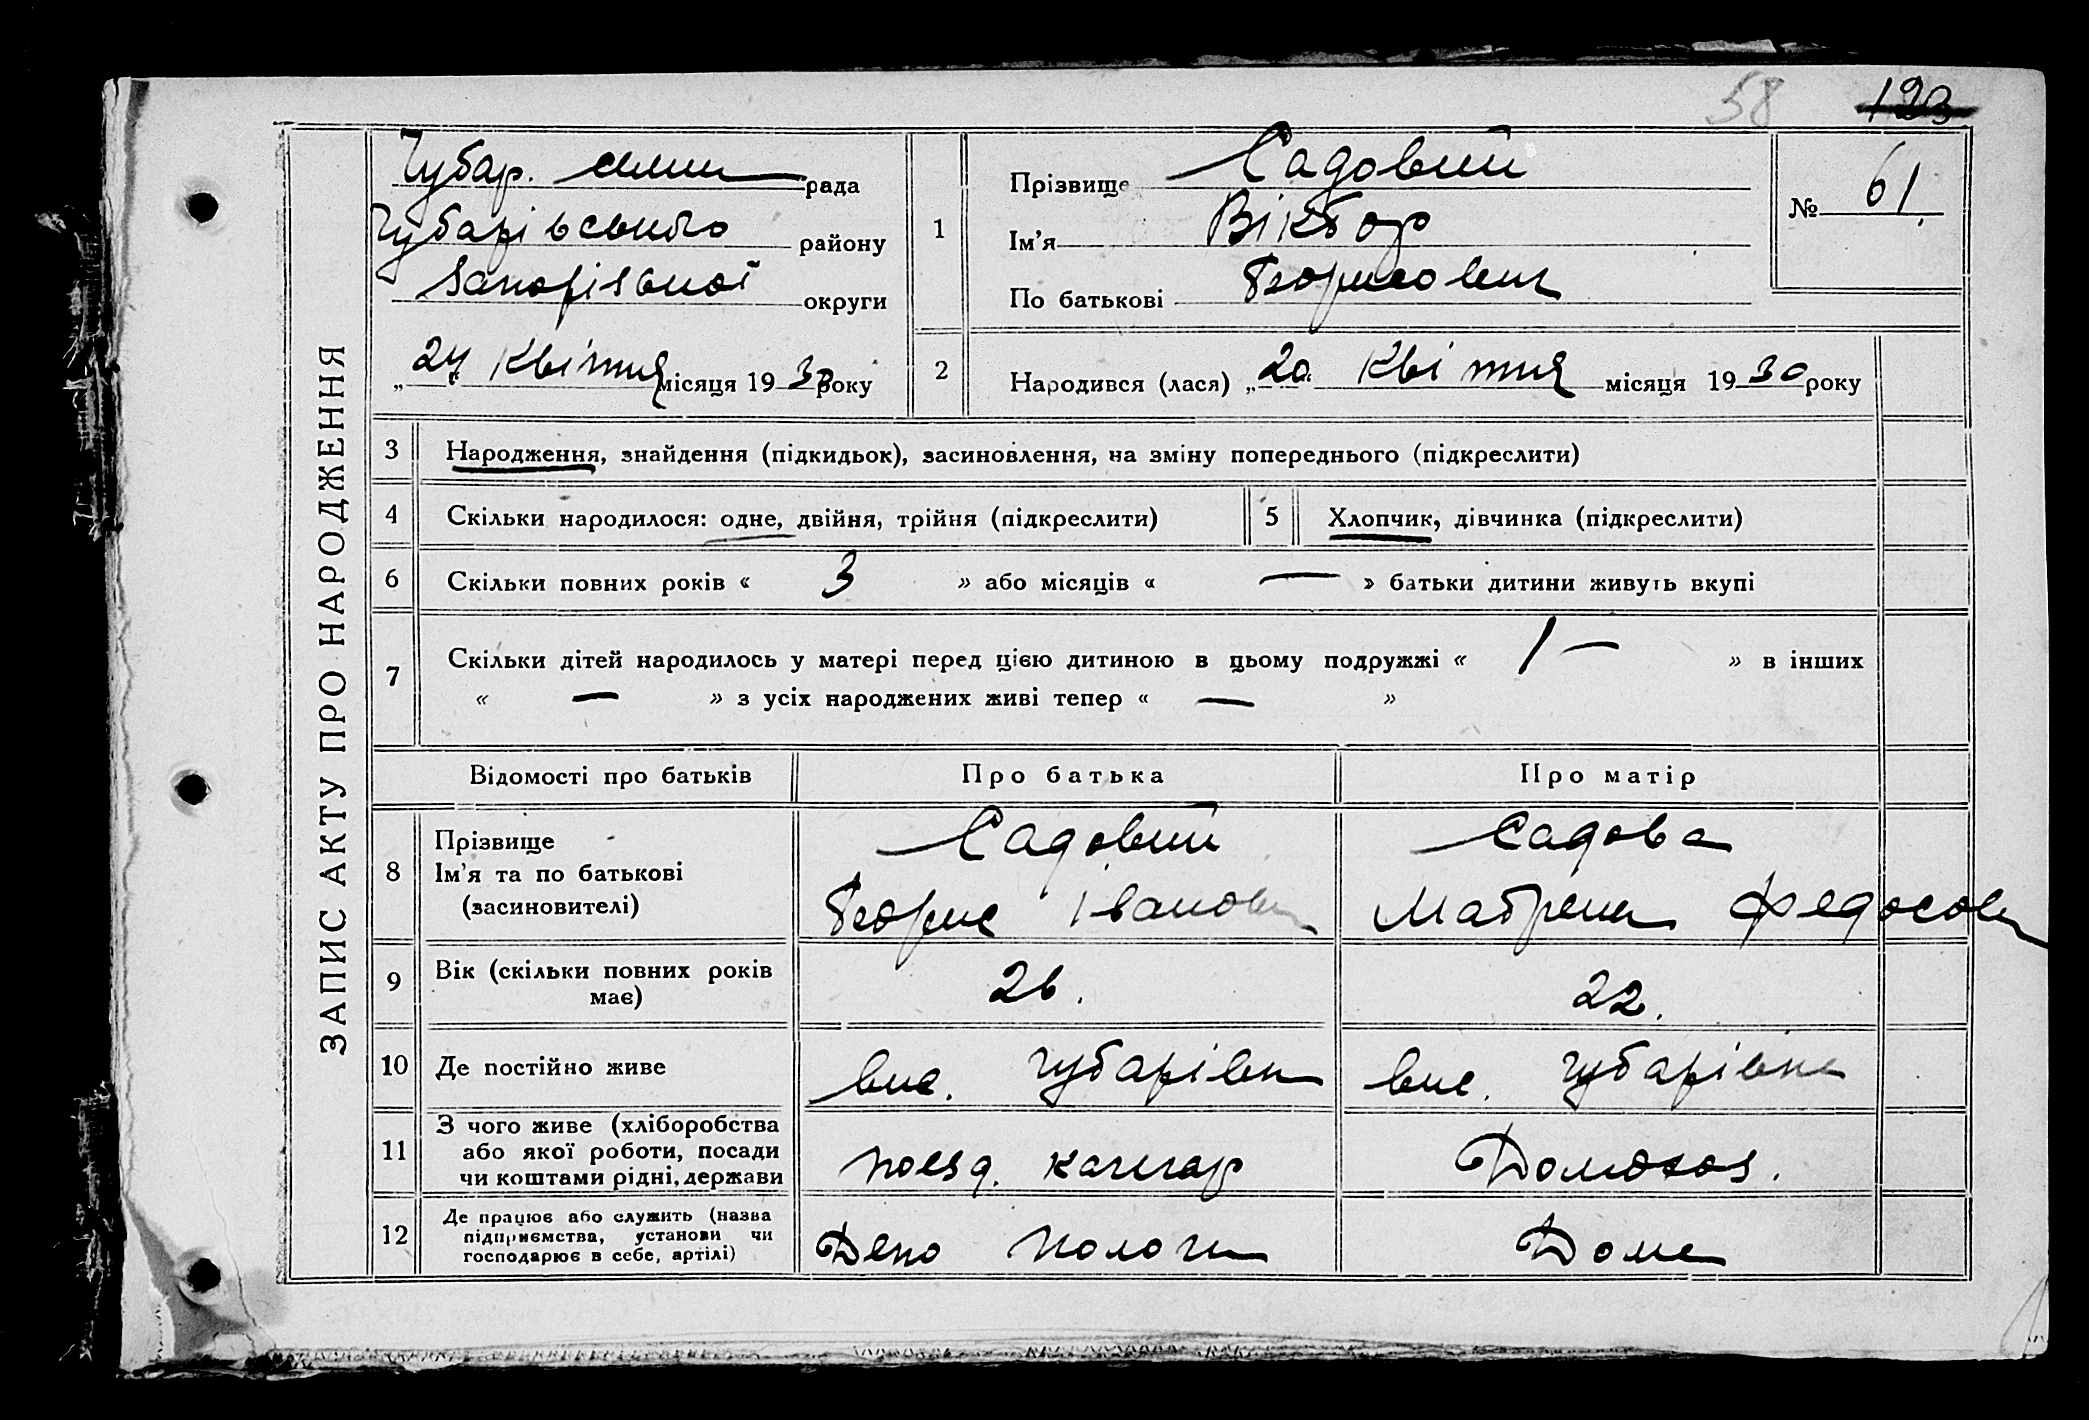 58 123
ЗАПИС АКТУ ПРО НАРОДЖЕННЯ
Чубар. рада
Чубарівського району
Запорізької округи
„24“ Квітня місяця 1930 року
1
Прізвище Садовий
Ім’я Віктор
По батькові Георгієвич
№ 61.
2 Народився (лася) „20“ Квітня місяця 1930 року
3 Народження, знайдення (підкидьок), засиновлення, на зміну попереднього (підкреслити)
4 Скільки народилося: одне, двійня, трійня (підкреслити) 5 Хлопчик, дівчинка (підкреслити)
6 Скільки повних років « 3 » або місяців « — » батьки дитини живуть вкупі
7 Скільки дітей народилось у матері перед цією дитиною в цьому подружжі « 1 — » в інших
« — » з усіх народжених живі тепер « — »
Відомості про батьків Про батька Про матір
8 Прізвище Ім’я та по батькові (засиновителі)
Садовий Садова
Іванович Мотрена Федосов
9 Вік (скільки повних років має) 26. 22.
10 Де постійно живе вис. Чубарівка вис. Чубарівка
11 З чого живе (хліборобства або якої роботи, посади чи коштами рідні, держави поезд. кочегар Домохоз.
12 Де працює або служить (назва підприємства, установи чи господарює в себе, артілі) Депо Пологи Дома